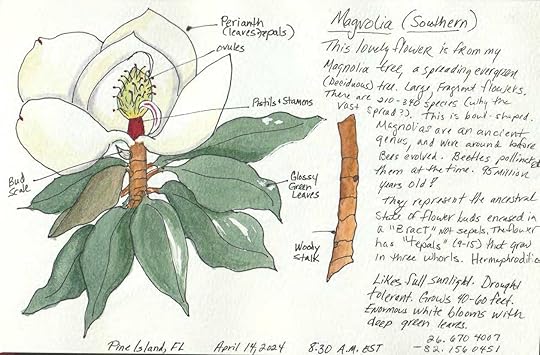 Magnolia (Southern)
Perianth
(leaves+sepals)
ovules
Pistils + Stamens
Bud
Scale
Glossy
Green
Leaves
Woody
Stalk
This lovely flower is from my
Magnolia tree, a spreading evergreen
(Deciduous) tree. Large, Fragrant flowers.
There are 210-340 species (why the
vast spread?). This is bowl-shaped.
Magnolias are an ancient
genus, and were around before
Bees evolved. Beetles pollinated
them at the time. 95 million
years old?
They represent the ancestral
state of flower buds encased in
a "Bract," not sepals. The flower
has "tepals" (9-15) that grow
in three whorls. Hermaphroditic
Likes full sunlight. Drought
tolerant. Grows 40-60 feet.
Enormous white blooms with
deep green leaves.
26.6704007
-82.1560451
Pine Island, FL April 14, 2024 8:30 A.M. EST